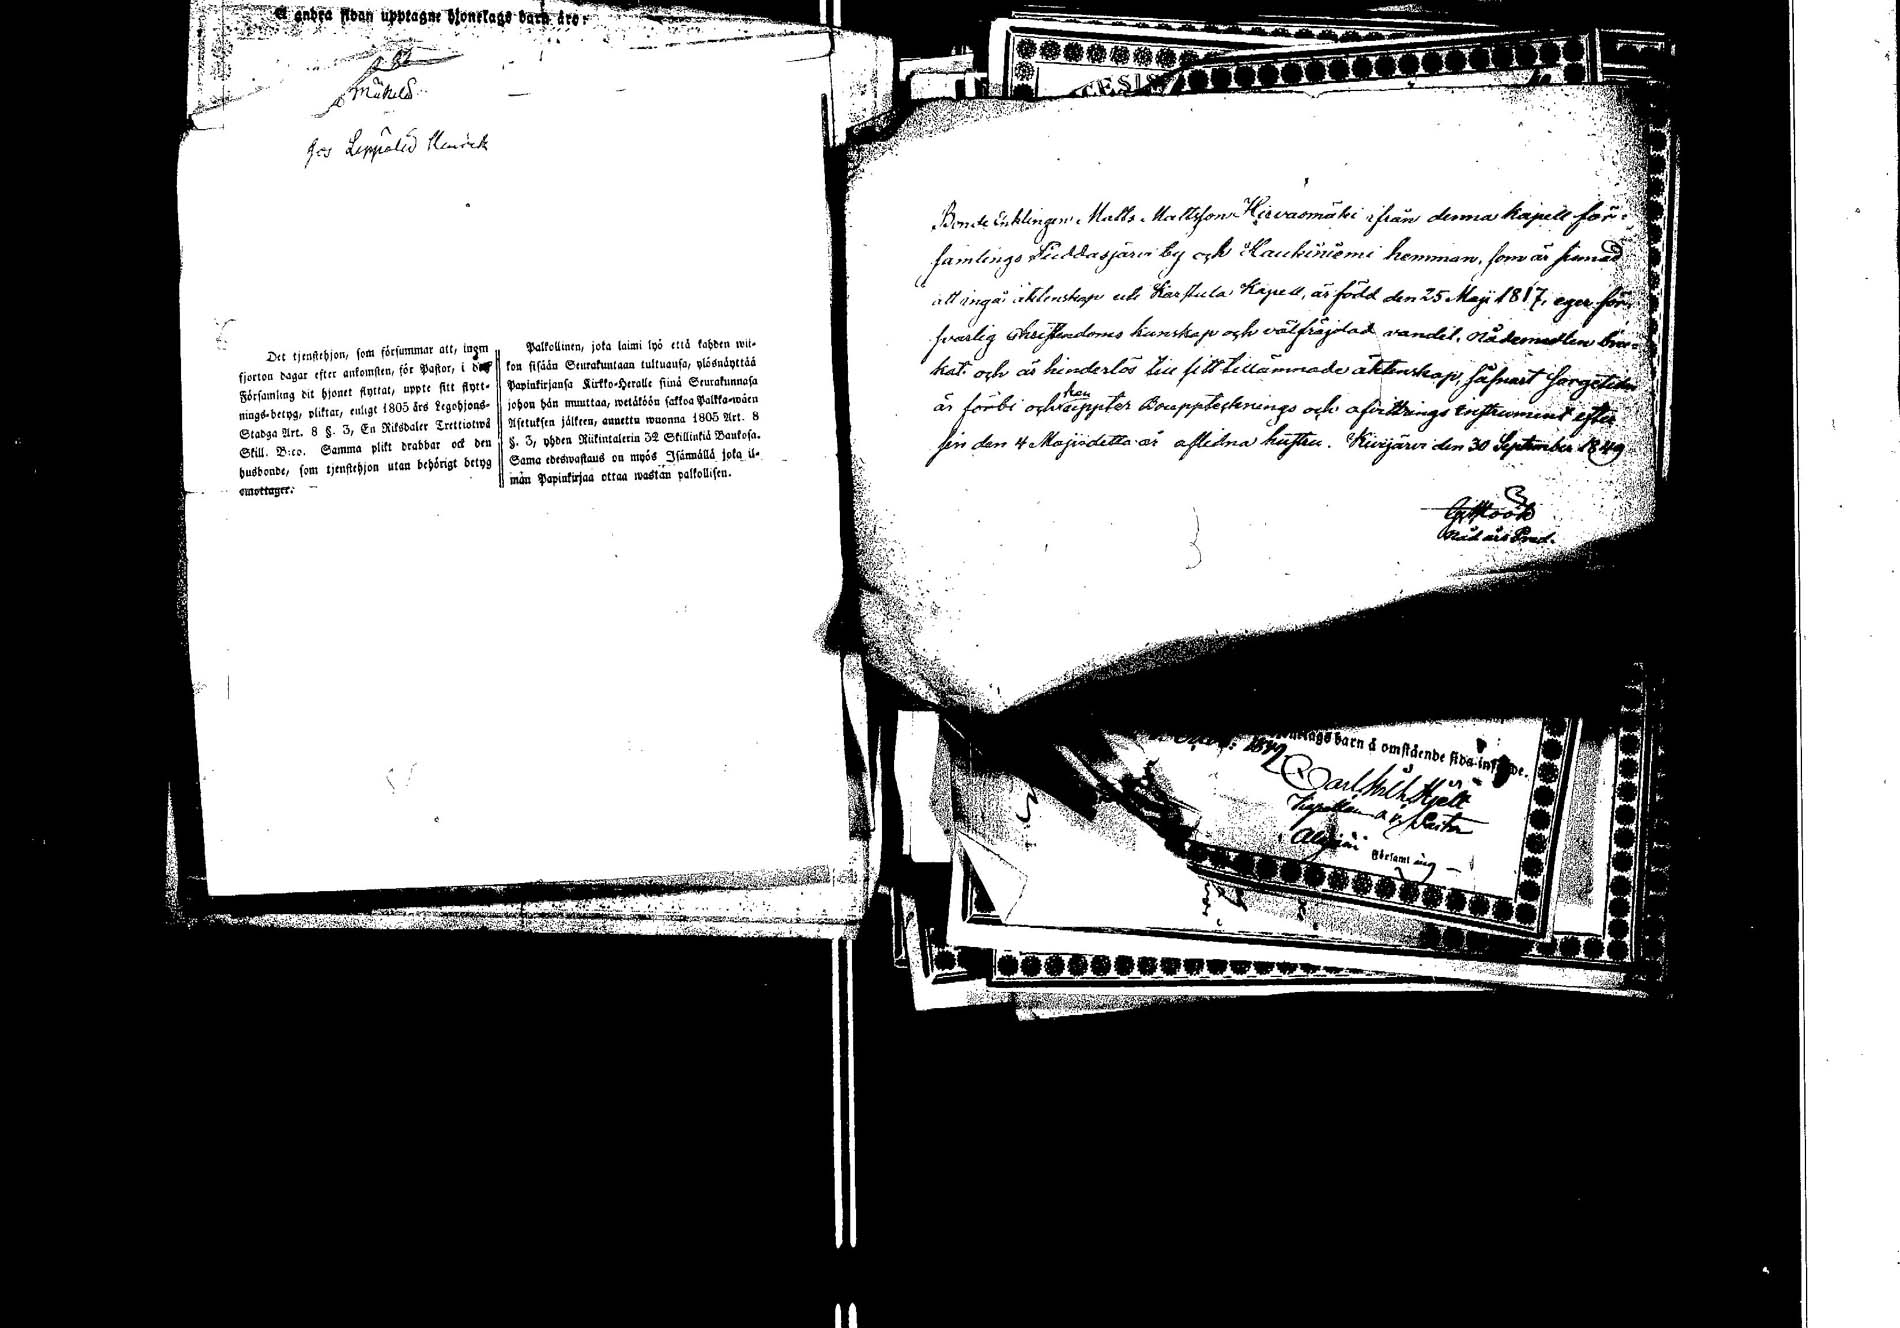 å andra sidan upptagne hjonelags barn äro:
Mäkelä
hos Leppälä Henrik
Det tjenstehjon, som försummar att, inom
fjorton dagar efter ankomsten, för Pastor, i den
Församling dit hjonet flyttat, uppte sitt flytt-
nings-betyg, pliktar, enligt 1805 års Legohjons-
Stadga Art. 8 §. 3, En Riksdaler Trettiotwå
Skill. B:co. Samma plikt drabbar ock den
husbonde, som tjenstehjon utan behörigt betyg
emottager.
Palkollinen, joka laimi lyö että kahden wii-
kon sisään Seurakuntaan tultuansa, ylösnäyttää
Papinkirjansa Kirkko-Heralle siinä Seurakunnasa
johon hän muuttaa, wetäköön sakkoa Palkka-wäen
Asetuksen jälkeen, annettu wuonna 1805 Art. 8
§. 3, yhden Riikintalerin 32 Skillinkiä Bankosa.
Sama edeswastaus on myös Isännällä joka il-
man Papinkirjaa ottaa wastan palkollisen.
Bonde Enklingen Matts Mattsson Hirvasmäki ifrån denna kapell för-
samlings Puddasjärvi by och Haukiniemi hemman, som är sinnad
att ingå äktenskap uti Karstula Kapell, är född den 25 Maji 1817, eger för-
svarlig Christendoms kunskap och välfräjdad vandel, Nådemedlen bru-
kat och är hinderlös till sitt tillämnade äktenskap, såsnart sorgetiden
är förbi och han uppter Bouppteknings och afvittrings instrument efter
sin den 4 Maji detta år aflidna hustru. Kivijärvi den 30 September 1849
Nåd års Pred.
1849
hjonelags barn å omstående sida införde.
Carl Wilh. Hjelt
Kapellan v. Pastor
Alajärvi Församling